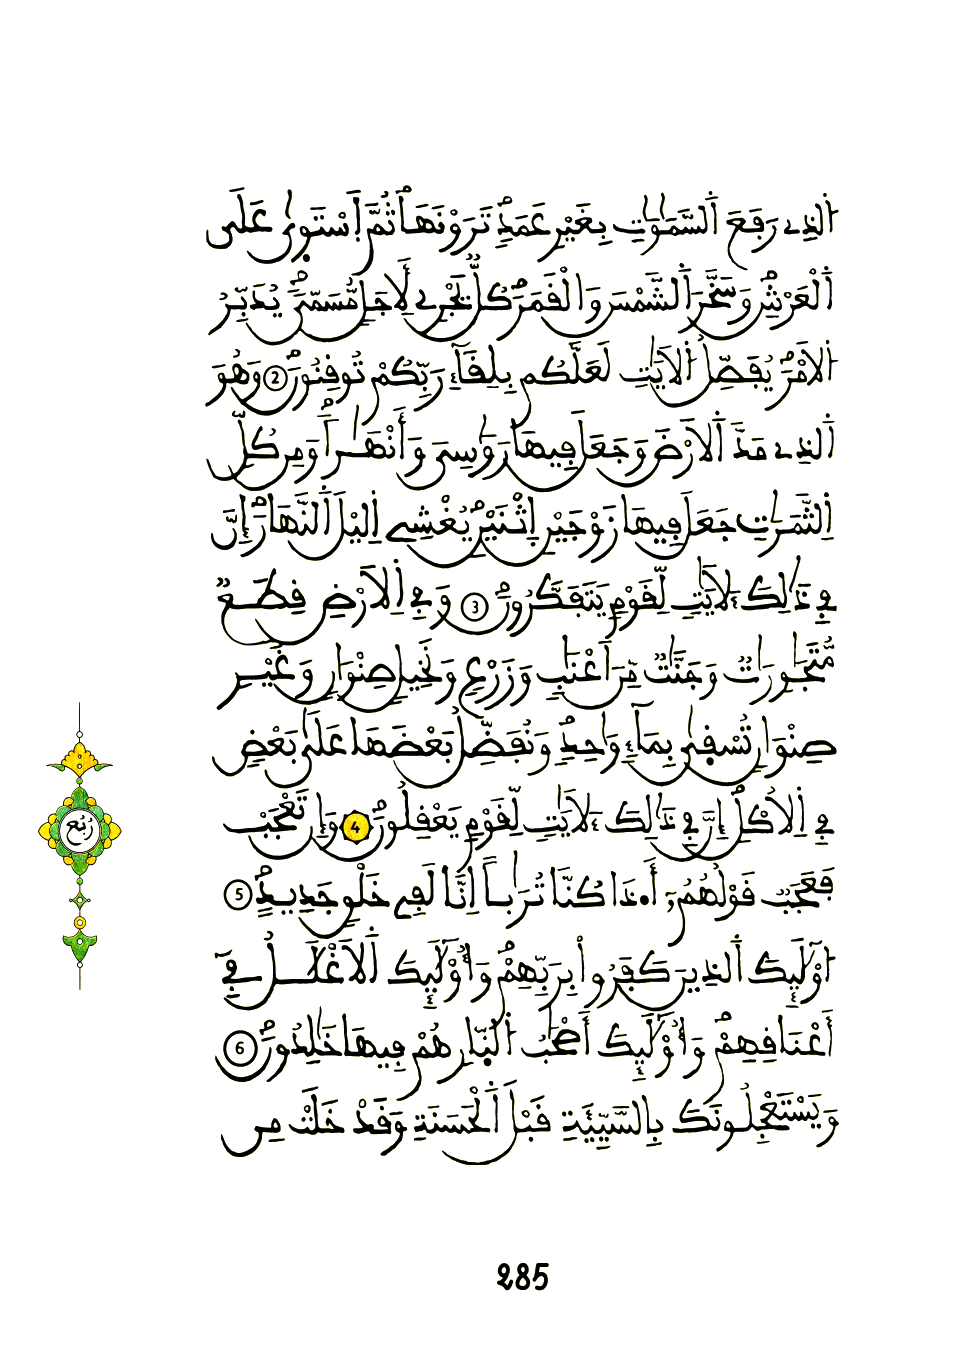 اَ۬لذِے رَفَعَ اَ۬لسَّمَٰوَٰتِ بِغَيْرِ عَمَدٖ تَرَوْنَهَاۖ ثُمَّ اَ۪سْتَو۪يٰ عَلَي
اَ۬لْعَرْشِۖ وَسَخَّرَ اَ۬لشَّمْسَ وَالْقَمَرَۖ كُلّٞ يَجْرِے لِأَجَلٖ مُّسَمّيٗۖ يُدَبِّرُ
اُ۬لَامْرَۖ يُفَصِّلُ اُ۬لَايَٰتِ لَعَلَّكُم بِلِقَآءِ رَبِّكُمْ تُوقِنُونَۖ 2 وَهُوَ
اَ۬لذِے مَدَّ اَ۬لَارْضَ وَجَعَلَ فِيهَا رَوَٰسِيَ وَأَنْهَٰراٗۖ وَمِن كُلِّ
اِ۬لثَّمَرَٰتِ جَعَلَ فِيهَا زَوْجَيْنِ اِ۪ثْنَيْنِۖ يُغْشِے اِ۬ليْلَ اَ۬لنَّهَارَۖ إِنَّ
فِے ذَٰلِكَ لَأٓيَٰتٖ لِّقَوْمٖ يَتَفَكَّرُونَۖ 3 وَفِے اِ۬لَارْضِ قِطَعٞ
مُّتَجَٰوِرَٰتٞ وَجَنَّٰتٞ مِّنَ اَعْنَٰبٖ وَزَرْعٖ وَنَخِيلٖ صِنْوَانٖ وَغَيْرِ
صِنْوَانٖ تُسْق۪يٰ بِمَآءٖ وَٰحِدٖۖ وَنُفَضِّلُ بَعْضَهَا عَلَيٰ بَعْضٖ
فِے اِ۬لُاكْلِۖ إِنَّ فِے ذَٰلِكَ لَأٓيَٰتٖ لِّقَوْمٖ يَعْقِلُونَۖ 4 وَإِن تَعْجَبْ
فَعَجَبٞ قَوْلُهُمُۥٓ أَ۟ذَا كُنَّا تُرَٰباً اِنَّا لَفِے خَلْقٖ جَدِيدٍۖ 5
ا۟وْلَٰٓئِكَ اَ۬لذِينَ كَفَرُواْ بِرَبِّهِمْۖ وَأُوْلَٰٓئِكَ اَ۬لَاغْلَٰلُ فِےٓ
أَعْنَاقِهِمْۖ وَأُوْلَٰٓئِكَ أَصْحَٰبُ اُ۬لنّ۪ارِ هُمْ فِيهَا خَٰلِدُونَۖ 6
وَيَسْتَعْجِلُونَكَ بِالسَّيِّئَةِ قَبْلَ اَ۬لْحَسَنَةِ وَقَدْ خَلَتْ مِن
رُبُع
285